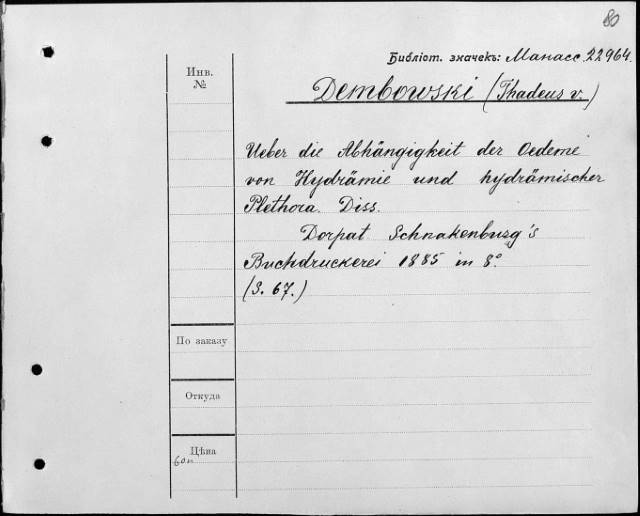 80
Библіот. значекъ: Манасс. 22964.
Инв.
№
Dembowski (Thadeus v.)
Ueber die Abhängigkeit der Oedeme
von Hydrämie und hydrämischer
Plethora. Diss.
Dorpat Schnakenburg's
Buchdruckerei 1885 in 8°
(S. 67.)
По заказу
Откуда
Цѣна
60к